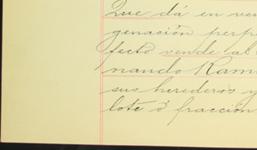 Que dá en ven
genación perp
fecto vende al
nando Ram
sus herederos y
lote ó fracción